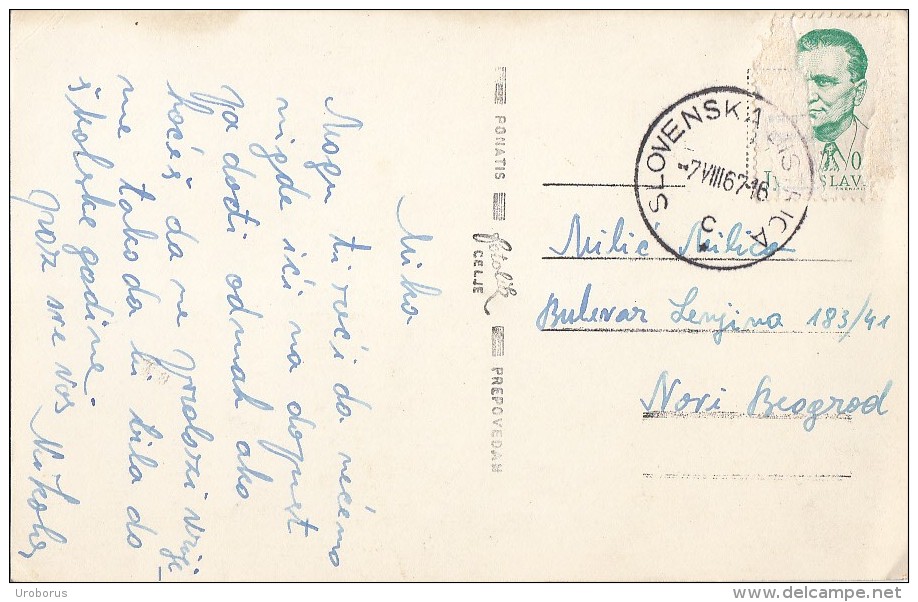 Mika
Mogu ti reći da nećemo
nigde ići na dopust
pa dođi odmah ako
hoćeš da ne prolazi vrije_
me tako da bi bila do
školske godine.
poz sve vas Nikola
PONATIS
fotolik
CELJE
PREPOVEDAN
SLOVENSKA BISTRICA
-7VIII67-16
C
SLAV
Milić Milica
Bulevar Lenjina 183/41
Novi Beograd
Uroborus
delcampe.net